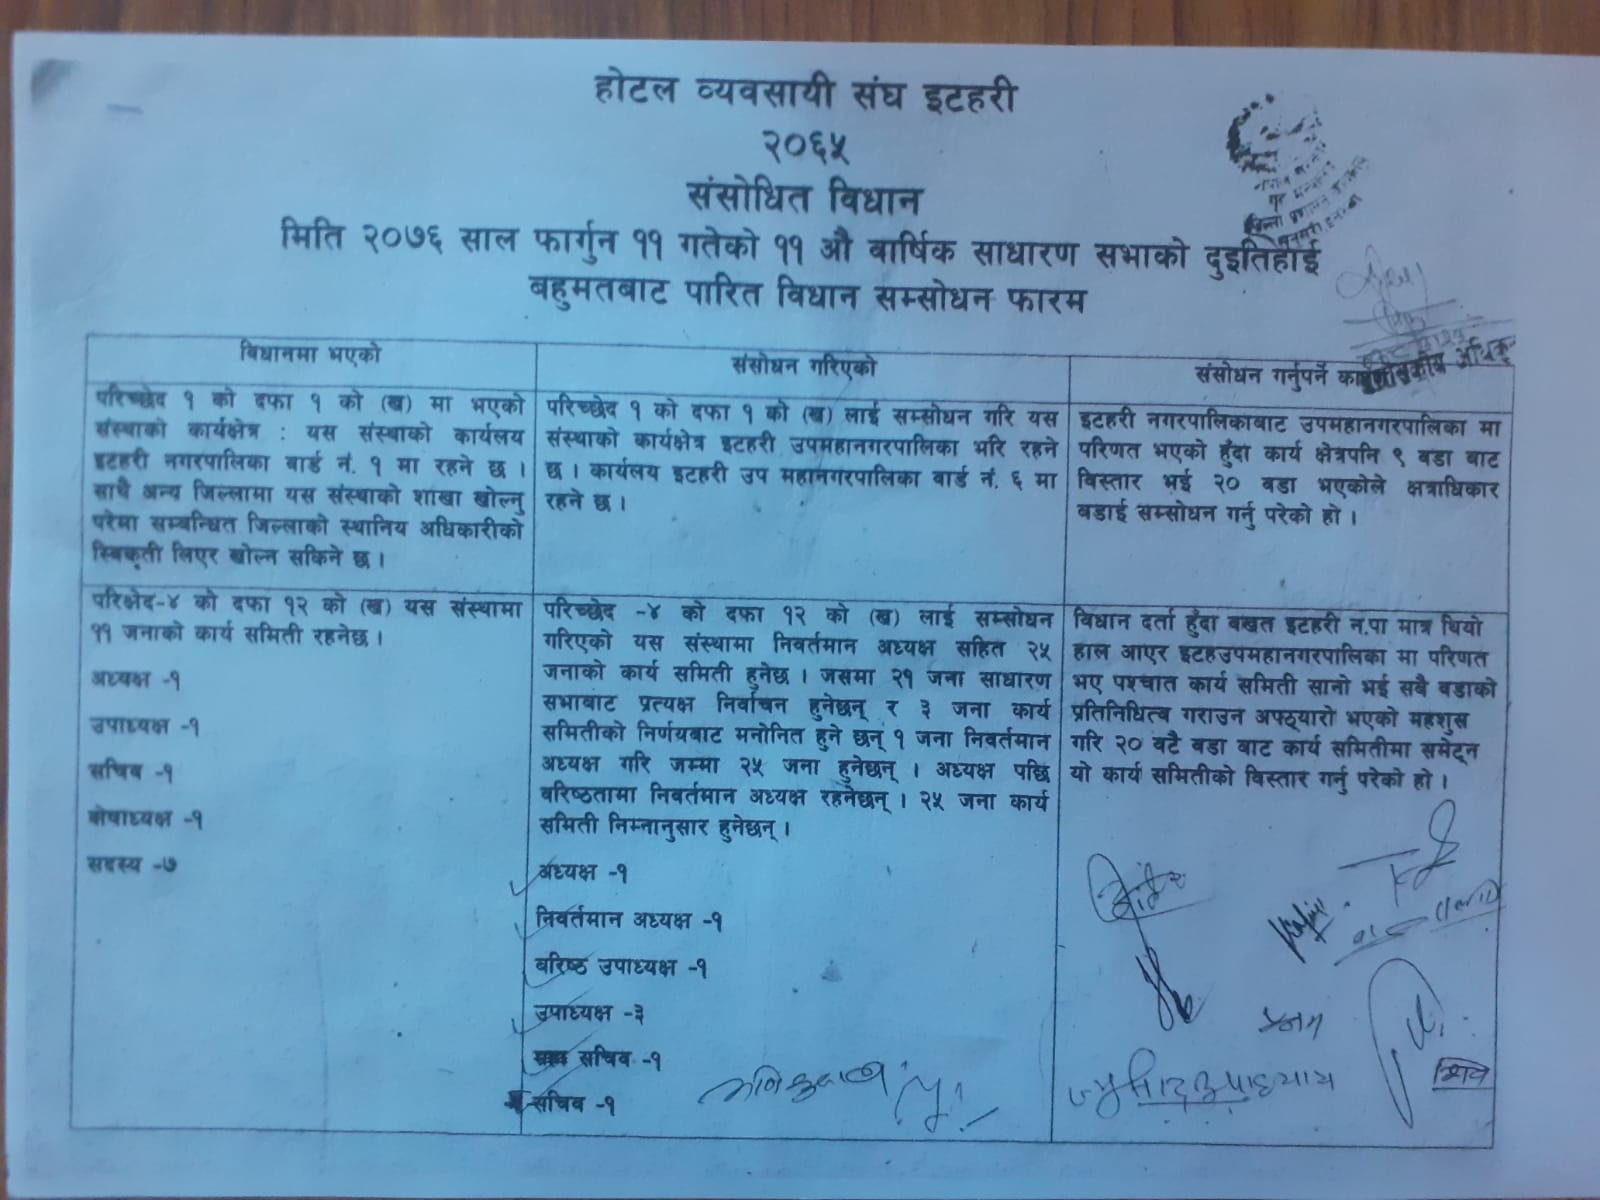 होटल व्यवसायी संघ इटहरी
२०६५
संसोधित विधान
मिति २०७६ साल फार्गुन ११ गतेको ११ औ वार्षिक साधारण सभाको दुइतिहाई
बहुमतबाट पारित विधान सम्सोधन फारम
विधानमा भएको
परिच्छेद १ को दफा १ को (ख) मा भएको
संस्थाको कार्यक्षेत्र : यस संस्थाको कार्यलय
इटहरी नगरपालिका वार्ड नं. १ मा रहने छ ।
साथै अन्य जिल्लामा यस संस्थाको शाखा खोल्नु
परेमा सम्बन्धित जिल्लाको स्थानिय अधिकारीको
स्विकृती लिएर खोल्न सकिने छ ।
संसोधन गरिएको
परिच्छेद १ को दफा १ को (ख) लाई सम्सोधन गरि यस
संस्थाको कार्यक्षेत्र इटहरी उपमहानगरपालिका भरि रहने
छ । कार्यलय इटहरी उप महानगरपालिका वार्ड नं. ६ मा
रहने छ ।
संसोधन गर्नुपर्ने
इटहरी नगरपालिकाबाट उपमहानगरपालिका मा
परिणत भएको हुँदा कार्य क्षेत्रपनि ९ वडा बाट
विस्तार भई २० वडा भएकोले क्षत्राधिकार
बडाई सम्सोधन गर्नु परेको हो ।
परिक्षेद-४ को दफा १२ को (ख) यस संस्थामा
११ जनाको कार्य समिती रहनेछ ।
अध्यक्ष -१
उपाध्यक्ष -१
सचिव -१
कोषाध्यक्ष -१
सदस्य -७
परिच्छेद -४ को दफा १२ को (ख) लाई सम्सोधन
गरिएको यस संस्थामा निवर्तमान अध्यक्ष सहित २५
जनाको कार्य समिती हुनेछ । जसमा २१ जना साधारण
सभाबाट प्रत्यक्ष निर्वाचन हुनेछन् र ३ जना कार्य
समितीको निर्णयबाट मनोनित हुने छन् १ जना निवर्तमान
अध्यक्ष गरि जम्मा २५ जना हुनेछन् । अध्यक्ष पछि
वरिष्ठतामा निवर्तमान अध्यक्ष रहनेछन् । २५ जना कार्य
समिती निम्नानुसार हुनेछन् ।
अध्यक्ष -१
निवर्तमान अध्यक्ष -१
वरिष्ठ उपाध्यक्ष -१
उपाध्यक्ष -३
सचिव -१
सचिव -१
विधान दर्ता हुँदा बखत इटहरी न.पा मात्र थियो
हाल आएर इटहउपमहानगरपालिका मा परिणत
भए पश्चात कार्य समिती सानो भई सबै वडाको
प्रतिनिधित्व गराउन अफ्ठ्यारो भएको महशुस
गरि २० वटै वडा बाट कार्य समितीमा समेट्न
यो कार्य समितीको विस्तार गर्नु परेको हो ।